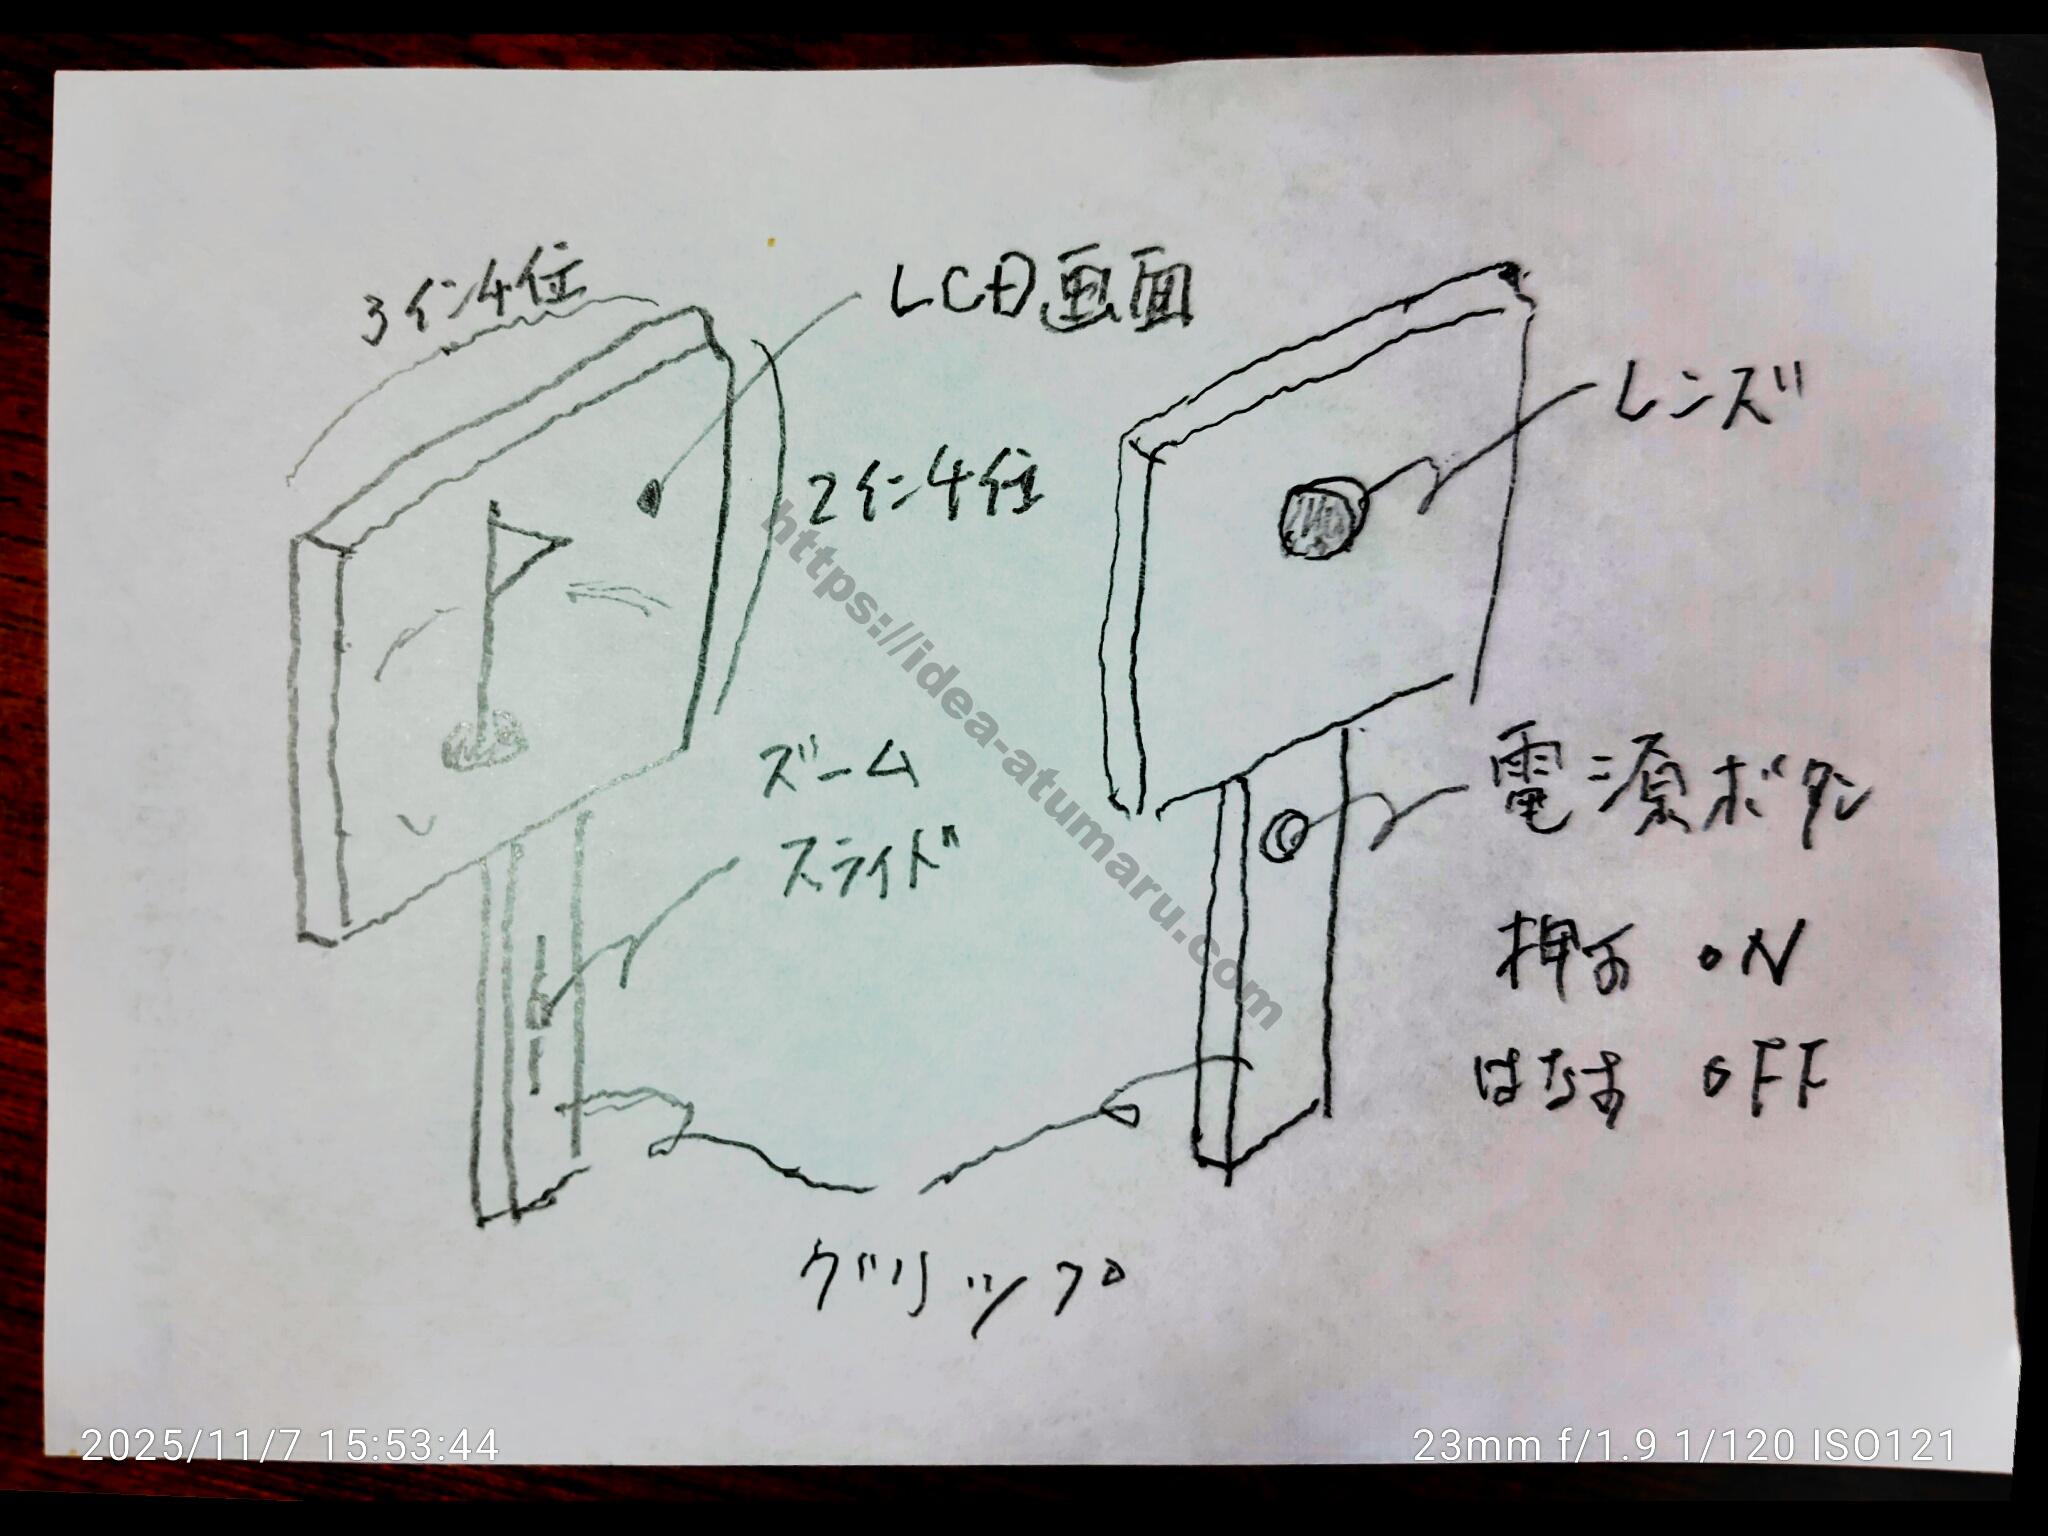 3インチ位
LCD画面
レンズ
2インチ位
https://idea-atumaru.com
ズーム
スライド
電源ボタン
押す ON
はなす OFF
グリップ
2025/11/7 15:53:44
23mm f/1.9 1/120 ISO121